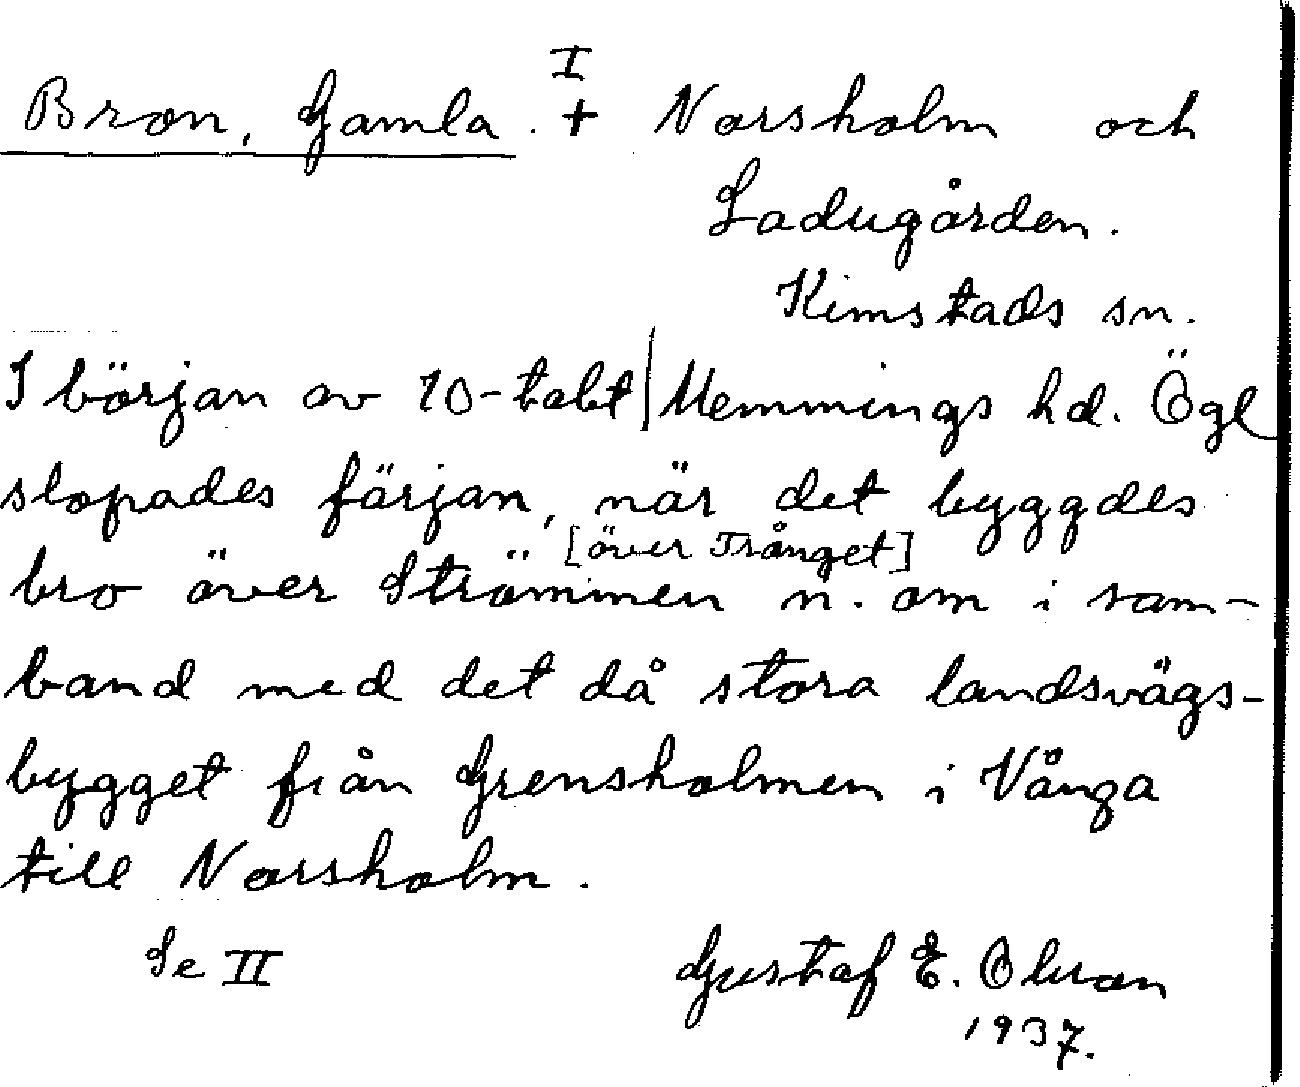 I
Bron, Gamla. + Norsholm och
Ladugården.
Kimstads sn.
I början av 70-talet Memmings hd. Ögl
slopades färjan, när det byggdes
[över Trånget]
bro över Strömmen n. om i sam-
band med det då stora landsvägs-
bygget från Grensholmen i Vånga
till Norsholm.
Se II
Gustaf E. Olsson
1937.